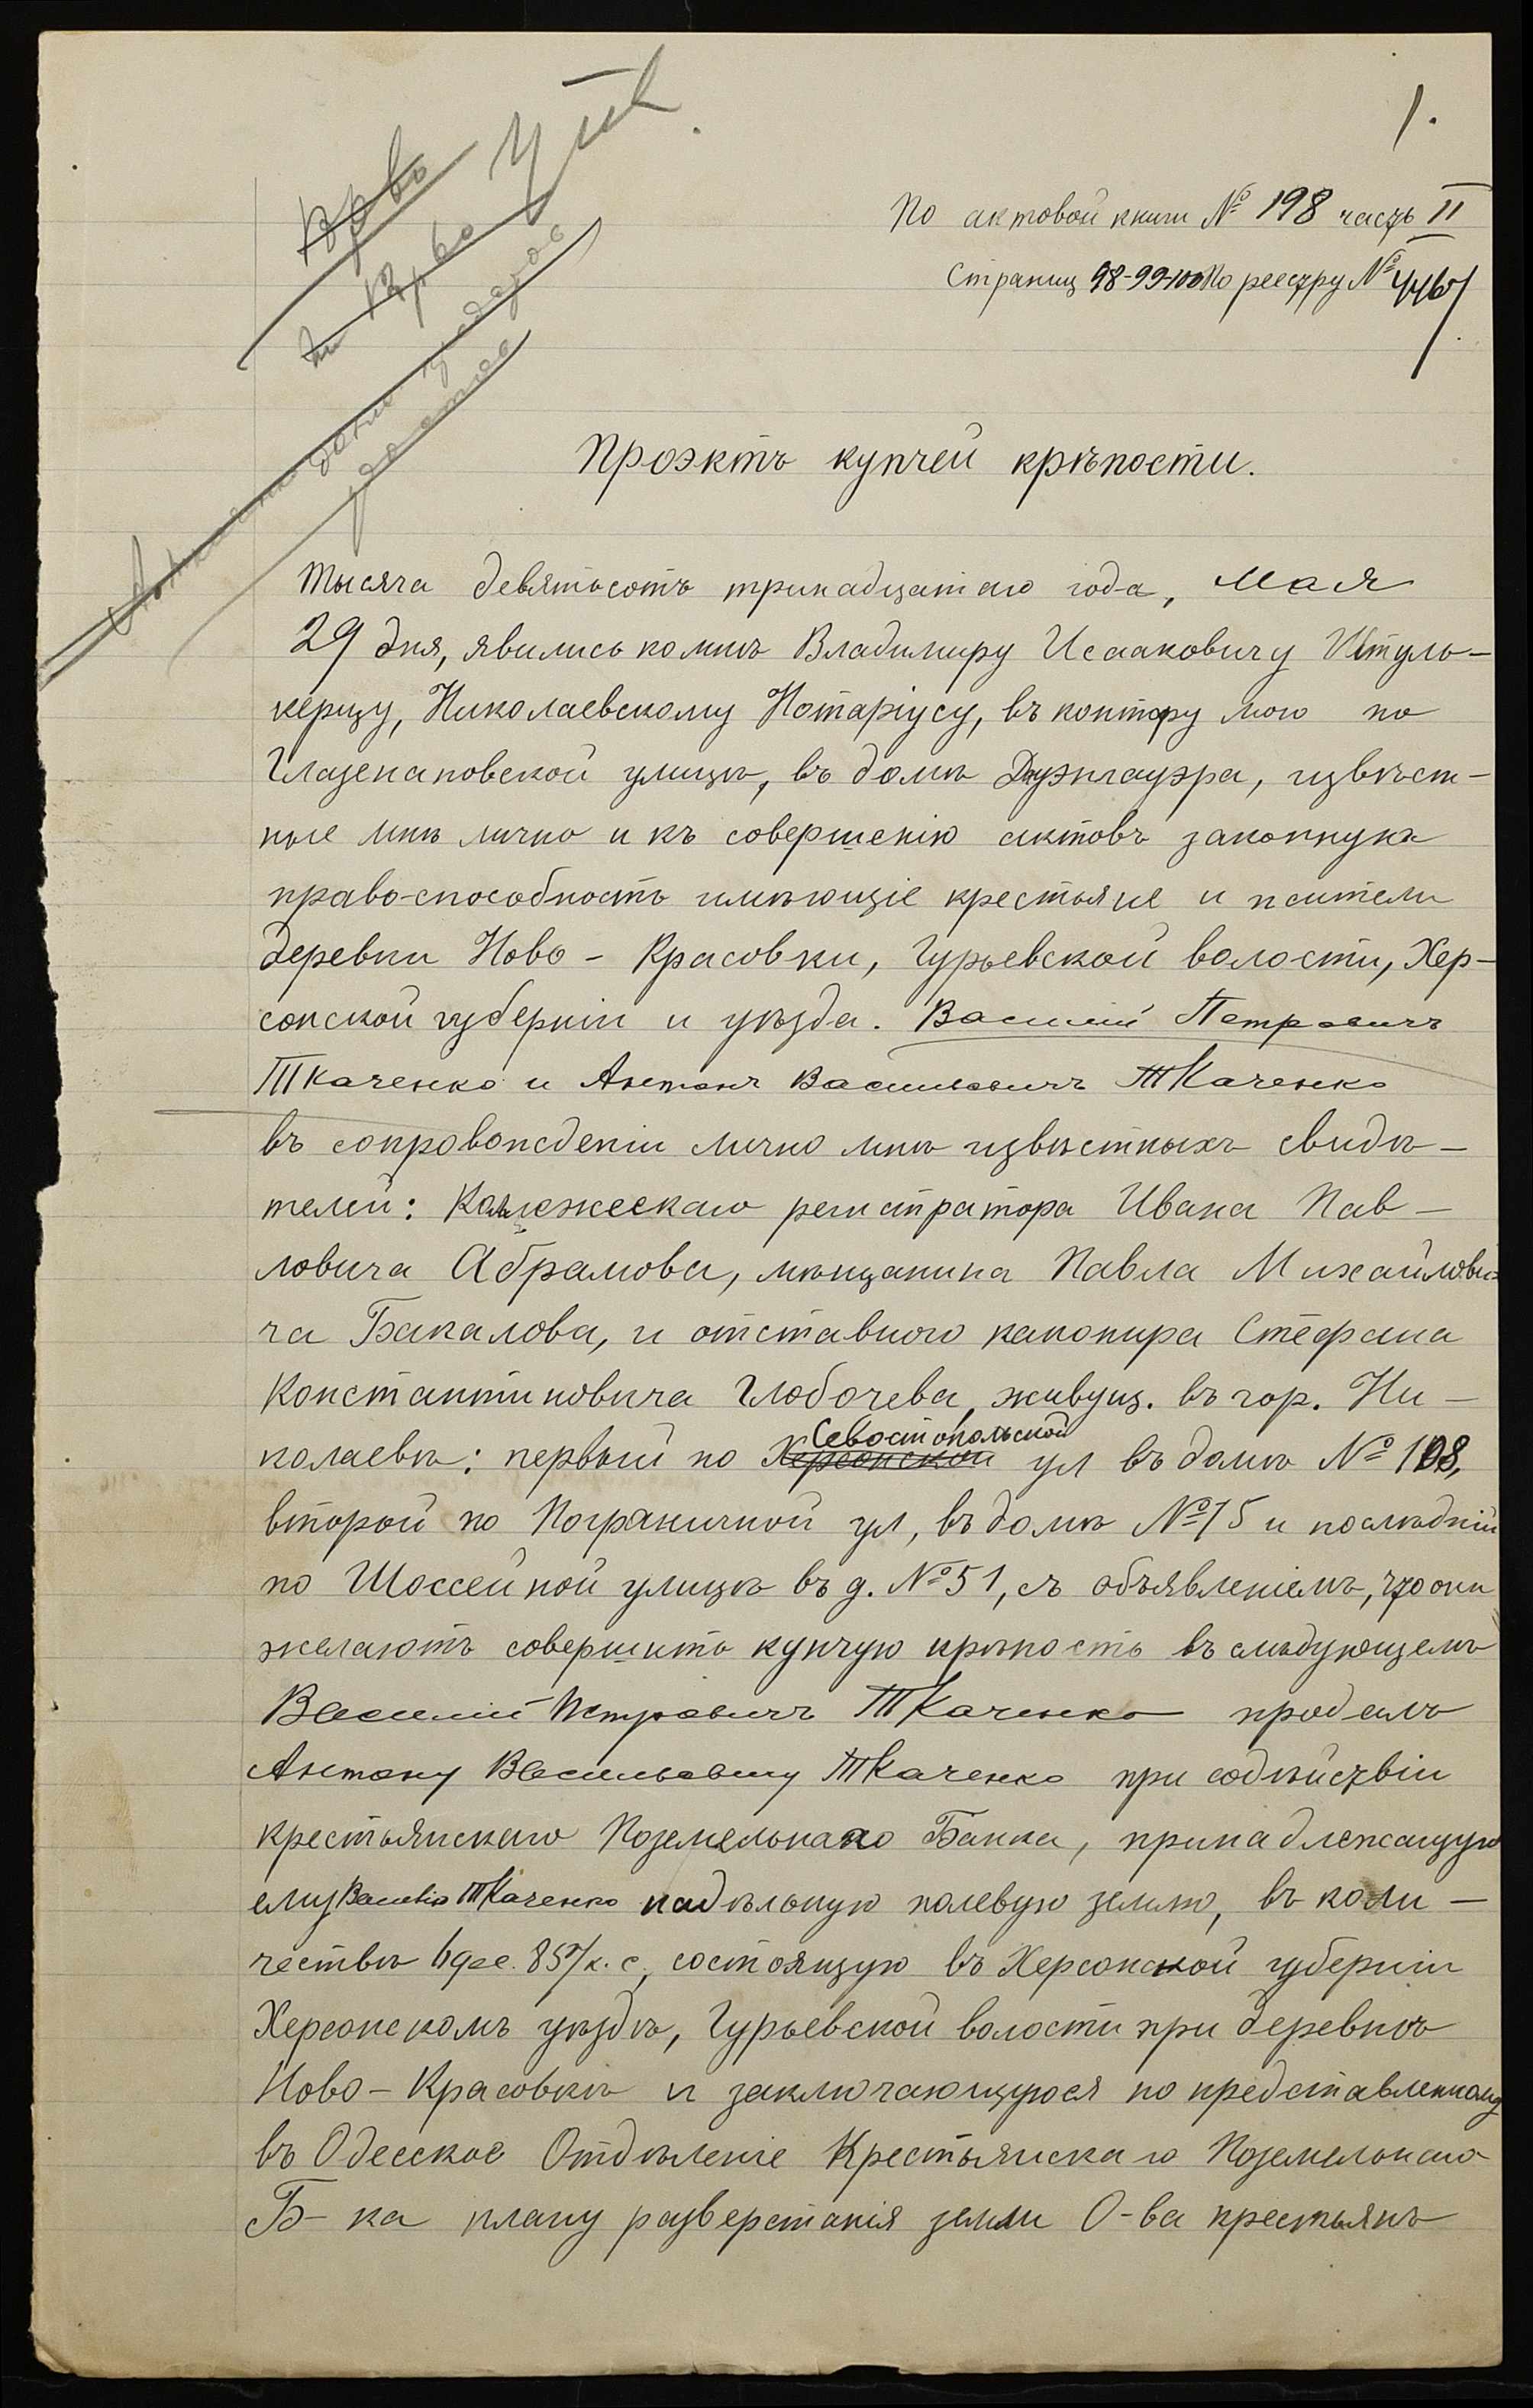 1.
По актовой книги № 198 часть II
Страниц 98-99-100 По реестру №
Проэктъ купчей крѣпости.
Тысяча девятьсотъ тринадцатаго года, Мая
29 дня, явились ко мнѣ Владимиру Исааковичу Штуль-
керцу, Николаевскому Нотаріусу, въ контору мою по
Глазенаповской улицѣ, въ домѣ извѣст-
ные мнѣ лично и къ совершенію актовъ законную
право-способность имѣющіе крестьяне и жители
деревни Ново-Красовки, Гурьевской волости, Хер-
сонской губерніи и уѣзда. Василій Петровичъ
Ткаченко и Антонъ Васильевичъ Ткаченко
въ сопровожденіи лично мнѣ извѣстныхъ свидѣ-
телей: Коллежескаго регистратора Ивана Пав-
ловича Абрамова, мѣщанина Павла Михайлови-
ча Бакалова, и отставного канонира Стефана
Константиновича Глобочева, живущ. въ гор. Ни-
колаевѣ: первый по Херсонской Севостопольской ул въ домѣ № 108,
второй по Пограничной ул, въ домѣ № 15 и послѣдній
по Шоссейной улицѣ въ д. № 51, съ объявленіемъ, что они
желаютъ совершить купчую крѣпость въ слѣдующемъ
Василій Петровичъ Ткаченко продалъ
Антону Васильевичу Ткаченко при содѣйствіи
Крестьянскаго Поземельнаго Банка, принадлежащую
ему Василію Ткаченко надѣльную полевую землю, въ коли-
чествѣ 6 дес. 857 к. с., состоящую въ Херсонской губерніи
Херсонскомъ уѣздѣ, Гурьевской волости при деревнѣ
Ново-Красовкѣ и заключающуюся по представленному
въ Одесское Отдѣленіе Крестьянскаго Поземельнаго
Б-ка плану разверстанія земли О-ва крестьянъ